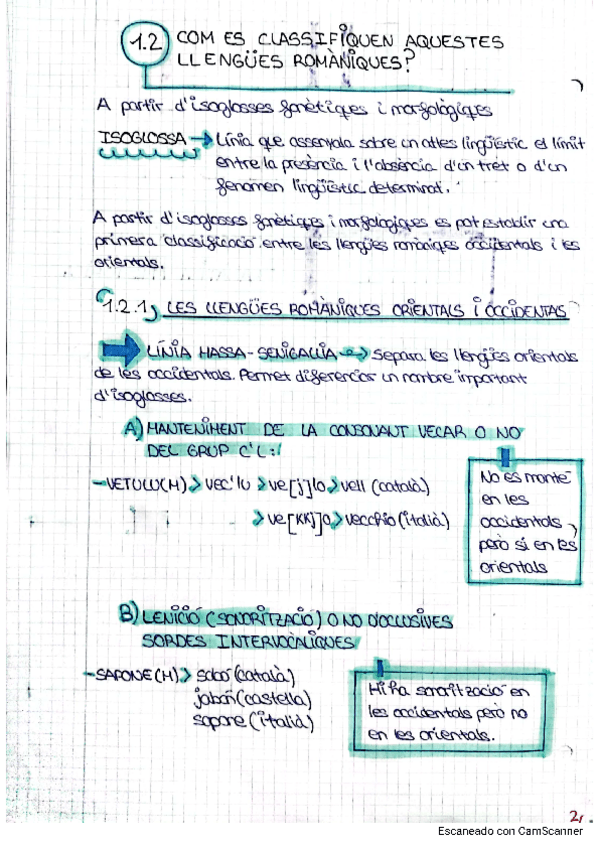 1.2 COM ES CLASSIFIQUEN AQUESTES
LLENGÜES ROMÀNIQUES?
A partir d'isoglosses fonètiques i morfològiques
ISOGLOSSA → Línia que assenyala sobre un atles lingüístic el límit
entre la presència i l'absència d'un tret o d'un
fenomen lingüístic determinat.
A partir d'isoglosses fonètiques i morfològiques es pot establir una
primera classificació entre les llengües romàniques occidentals i les
orientals.
1.2.1. LES LLENGÜES ROMÀNIQUES ORIENTALS I OCCIDENTALS
LÍNIA MASSA-SENIGALLIA → Separa les llengües orientals
de les occidentals. Permet diferenciar un nombre important
d'isoglosses.
A) MANTENIMENT DE LA CONSONANT VELAR O NO
DEL GRUP C'L:
- VETULU(M) > vec'lu > ve[j]lo > vell (català)
> ve[kkj]o > vecchio (italià)
No es manté
en les
occidentals,
però sí en les
orientals
B) LENICIÓ (SONORITZACIÓ) O NO D'OCLUSIVES
SORDES INTERVOCÀLIQUES
- SAPONE(M) > sabó (català)
jabón (castellà)
sapone (italià)
Hi ha sonorització en
les occidentals però no
en les orientals.
2.
Escaneado con CamScanner